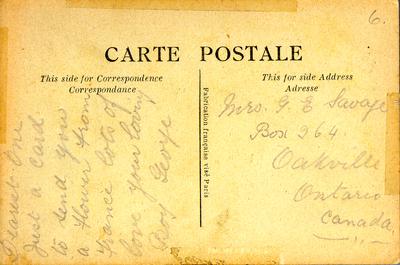 6.
CARTE POSTALE
This side for Correspondence
Correspondance
This for side Address
Adresse
Fabrication française visé Paris
Dearest One
Just a card
to send you
a flower from
France lots of
love your loving
Boy George
Mrs. G E Savage
Box 264.
Oakville
Ontario
Canada.